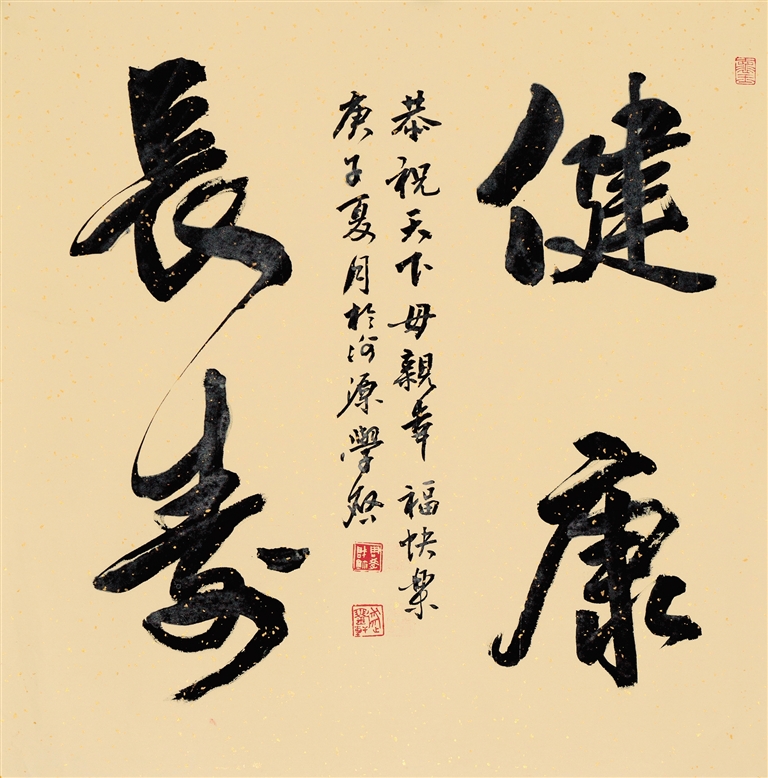 健康
長壽
恭祝天下母親幸福快樂
庚子夏月於河源學